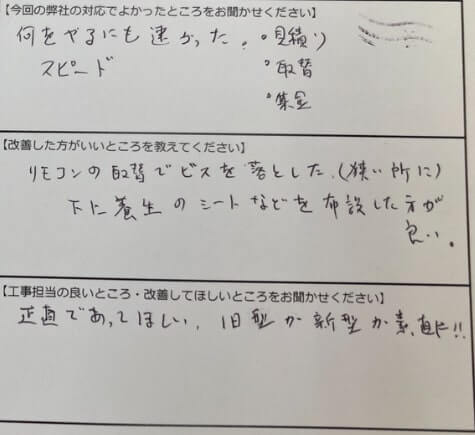 【今回の弊社の対応でよかったところをお聞かせください】
何をやるにも速かった。 °見積り
スピード °取替
°集金
【改善した方がいいところを教えてください】
リモコンの取替でビスを落とした、(狭い所に)
下に養生のシートなどを布設した方が
良い。
【工事担当の良いところ・改善してほしいところをお聞かせください】
正直であってほしい、旧型か新型か素直に!!